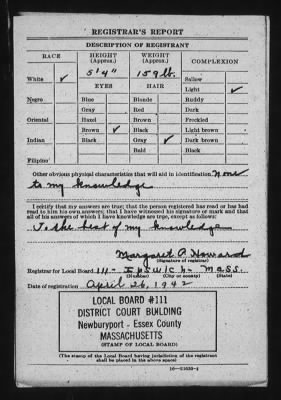 REGISTRAR'S REPORT
DESCRIPTION OF REGISTRANT
RACE
HEIGHT (Approx.)
WEIGHT (Approx.)
COMPLEXION
White ✓
5' 4"
159 lb.
Sallow
EYES
HAIR
Light ✓
Negro
Blue
Blonde
Ruddy
Gray
Red
Dark
Oriental
Hazel
Brown
Freckled
Brown ✓
Black
Light brown
Indian
Black
Gray ✓
Dark brown
Bald
Black
Filipino
Other obvious physical characteristics that will aid in identification None
to my knowledge
I certify that my answers are true; that the person registered has read or has had
read to him his own answers; that I have witnessed his signature or mark and that
all of his answers of which I have knowledge are true, except as follows:
To the best of my knowledge
Margaret P. Howard
(Signature of registrar)
Registrar for Local Board 111- Ipswich- Mass.
(Number) (City or county) (State)
Date of registration April 26, 1942
LOCAL BOARD #111
DISTRICT COURT BUILDING
Newburyport - Essex County
MASSACHUSETTS
(STAMP OF LOCAL BOARD)
(The stamp of the Local Board having jurisdiction of the registrant
shall be placed in the above space)